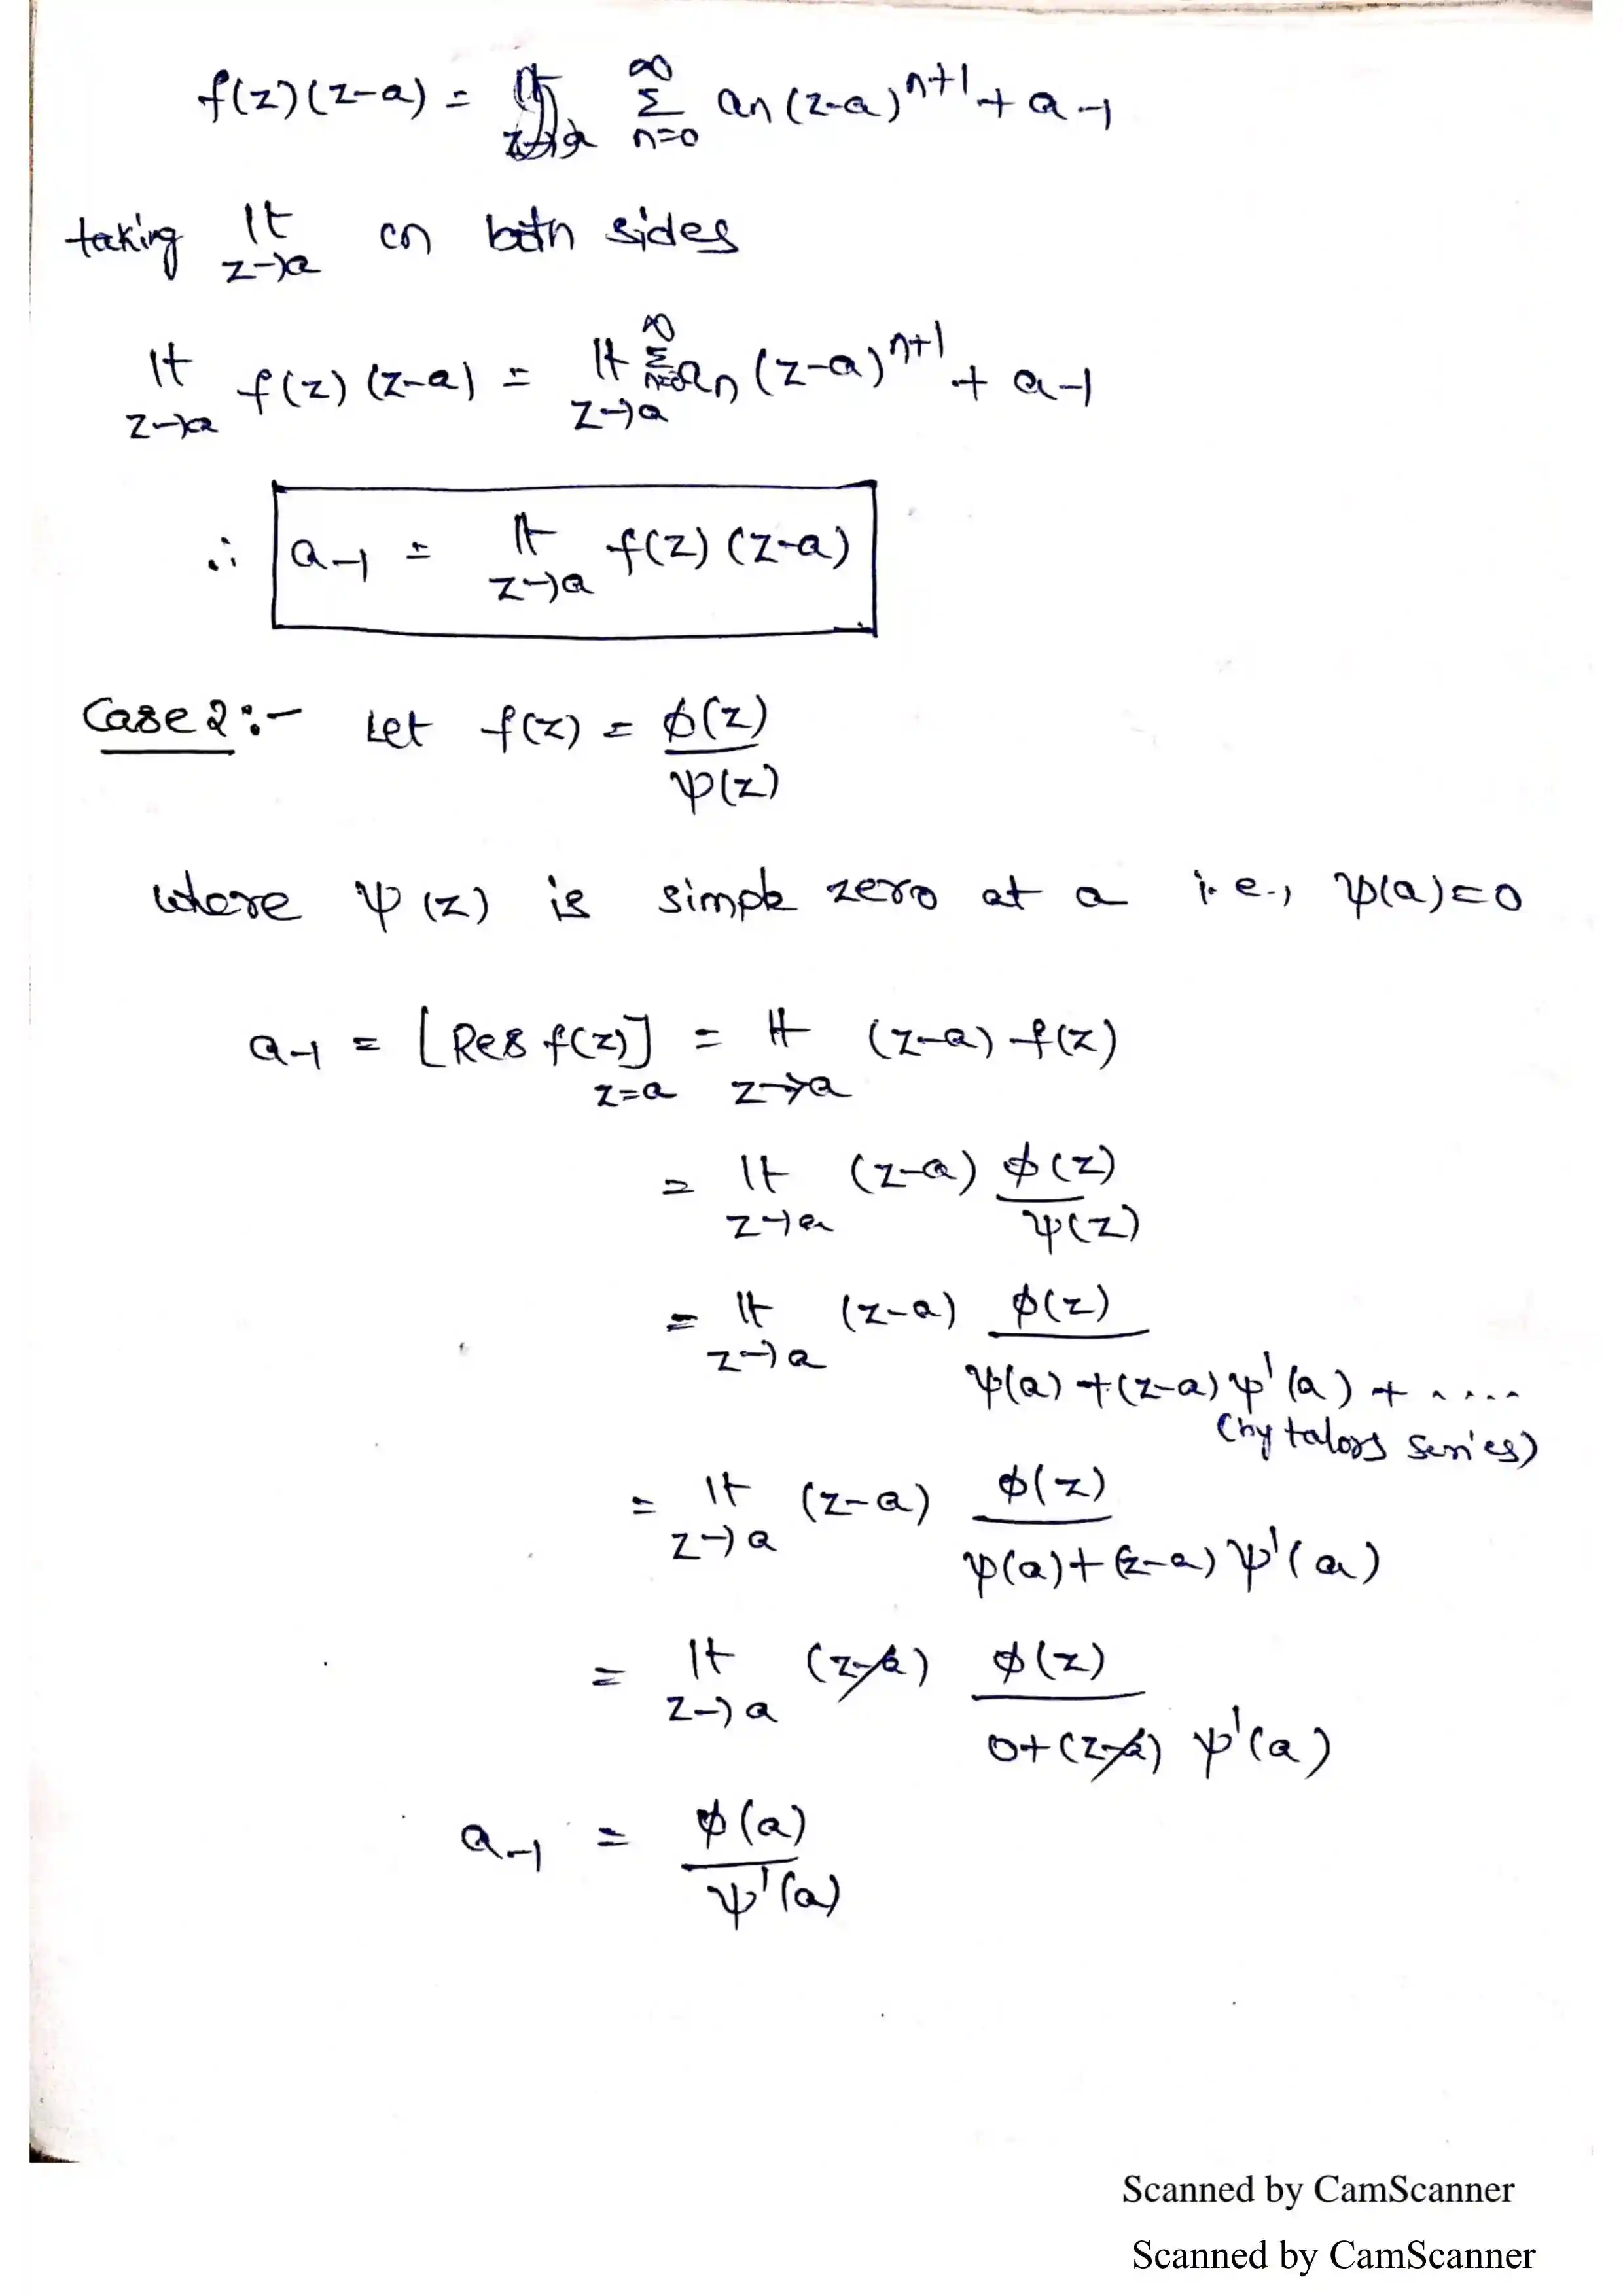 f(z)(z-a) = Σ_{n=0}^{∞} an (z-a)^{n+1} + a-1
taking lt_{z→a} on both sides
lt_{z→a} f(z)(z-a) = lt_{z→a} Σ_{n=0}^{∞} an (z-a)^{n+1} + a-1
∴ a-1 = lt_{z→a} f(z)(z-a)
Case 2:- Let f(z) = ϕ(z)/ψ(z)
where ψ(z) is simple zero at a i.e., ψ(a)=0
a-1 = [Res f(z)]_{z=a} = lt_{z→a} (z-a) f(z)
= lt_{z→a} (z-a) ϕ(z)/ψ(z)
= lt_{z→a} (z-a) ϕ(z)/(ψ(a)+(z-a)ψ'(a)+....)
(by talors series)
= lt_{z→a} (z-a) ϕ(z)/(ψ(a)+(z-a)ψ'(a))
= lt_{z→a} (z-a) ϕ(z)/(0+(z-a)ψ'(a))
a-1 = ϕ(a)/ψ'(a)
Scanned by CamScanner
Scanned by CamScanner